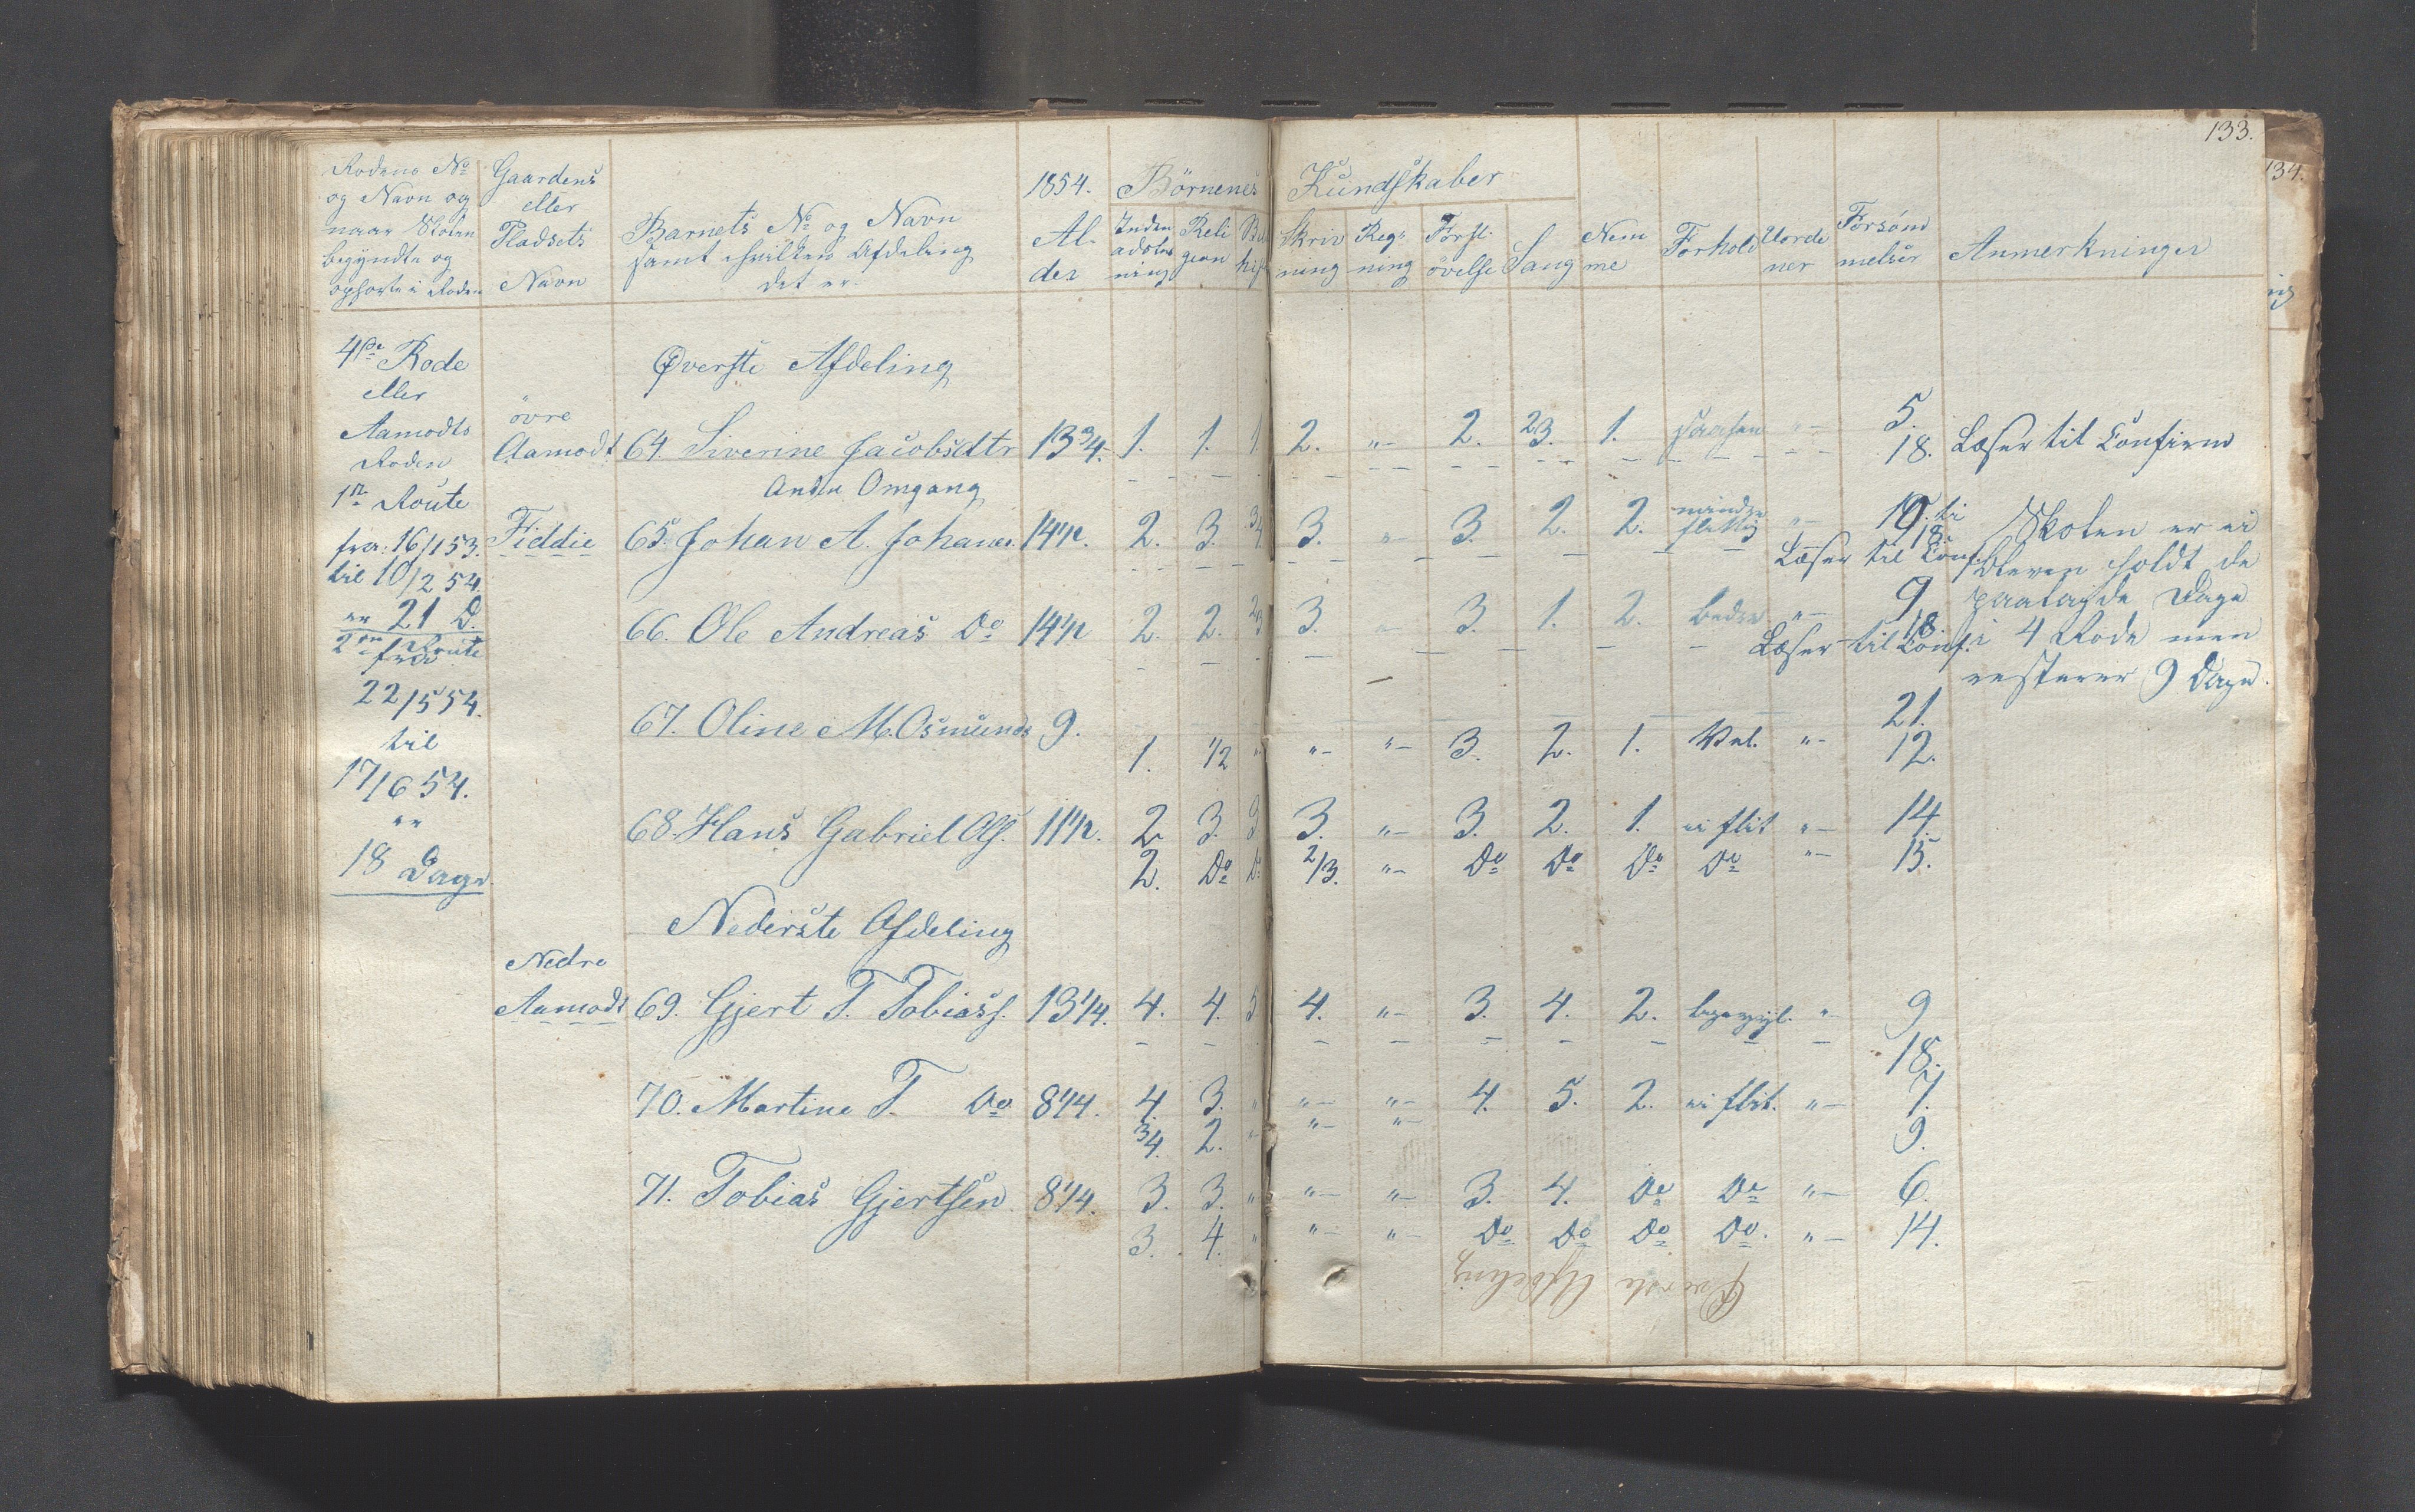 133.
134.
Rodens No og Navn og naar Skolen begyndte og ophørte i Roden
Gaardens eller Pladsets Navn
Barnets No og Navn samt hvilken Afdeling det er
1854. Alder
Börnenes Kundskaber
Inden adslæsning
Religion
Skrivning
Regning
Forst. övelse
Sang
Nemme
Forhold
Uordener
Forsømmelser
Anmerkninger
4de Rode
eller
Aamodts
Roden
1te Route
fra: 16/1 53.
til 10/2 54.
er 21 D.
2den Route
fra
22/5 54.
til
17/6 54.
er
18 Dage.
Øverste Afdeling
övre
Aamodt 64. Siverine Jacobsdtr 13 3/4. 1. 1. 1. 2. "- 2. 2/3. 1. "- 5.
18. Læser til Confirm
Anden Omgang
Fiddie 65. Johan A. Johanes. 14 1/2. 2. 3. 3/4. 3. " 3. 2. 2. mindre flittig "-
18.
Læser til Conf.
66. Ole Andreas Do 14 1/2 2. 2. 2/3 3. "- 3. 1. 2. bedre "- 9.
18
Læser til Conf.
Skolen er ei
bleven holdt de
paalagde Dage
i 4 Rode men
resterer 9 Dage.
67. Oline M. Osmunds 9. 21.
1. 1/2 "- "- "- 3. 2. 1. Vel. "- 12.
68. Hans Gabriel Ols. 11 1/2. 2. 3. 3. 3. "- 3. 2. 1. ei flit "- 14.
2. Do Do 2/3. "- Do Do Do Do "- 15.
Nederste Afdeling
Nedre
Aamodt 69. Gjert T. Tobiass. 13 1/4. 4. 4. 5 4. "- 3. 4. 2. "- 9
18.
70. Martine T. Do 8 1/4. 4. 3. " "- "- 4. 5. 2. ei flit. "- 7.
3/4. 2. "- "- "- 9.
71. Tobias Gjertsen. 8 1/4. 3. 3. " "- "- 3. 4. Do Do "- 6.
3. 4. " "- "- Do Do Do Do. "- 14.
Øverste Afdeling